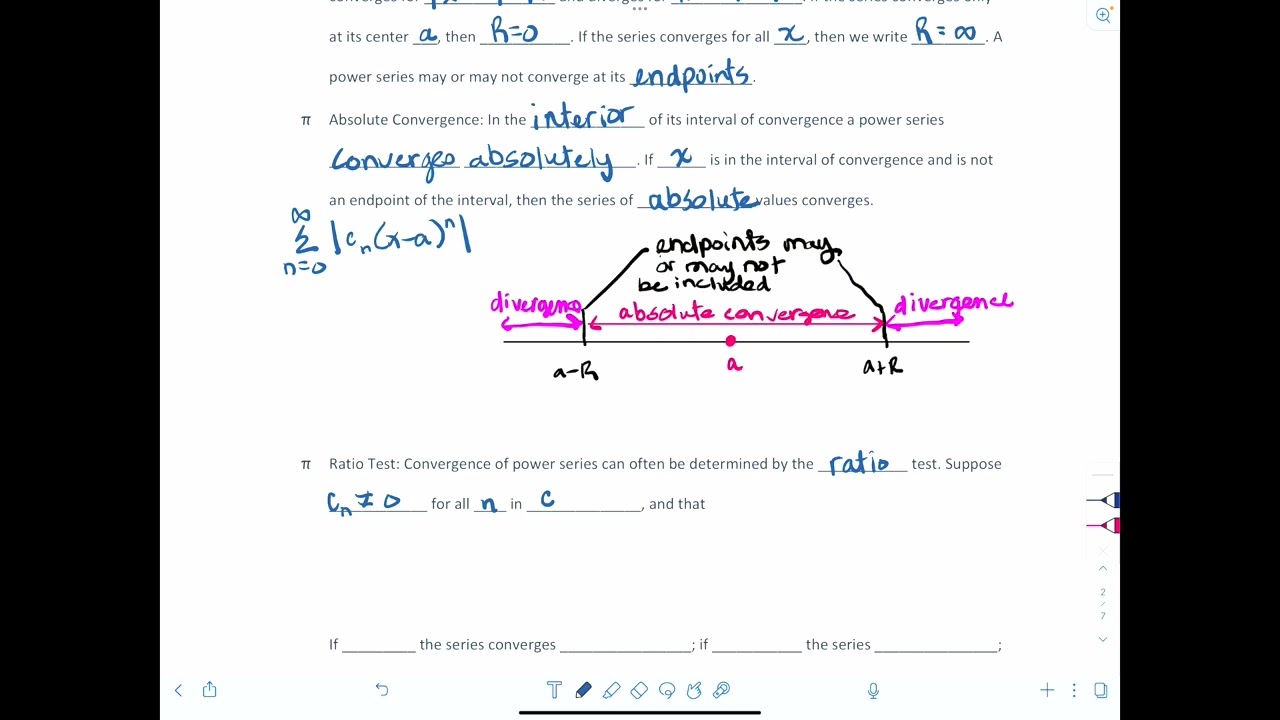 at its center a, then R=0. If the series converges for all x, then we write R=∞. A
power series may or may not converge at its endpoints.
π Absolute Convergence: In the interior of its interval of convergence a power series
converges absolutely. If x is in the interval of convergence and is not
an endpoint of the interval, then the series of absolute values converges.
∞
Σ |cₙ(x-a)ⁿ|
n=0
endpoints may
or may not
be included
divergence absolute convergence divergence
a-R a a+R
π Ratio Test: Convergence of power series can often be determined by the ratio test. Suppose
cₙ ≠ 0 for all n in C, and that
If ________ the series converges ______________; if _________ the series _____________;
2
/
7
T